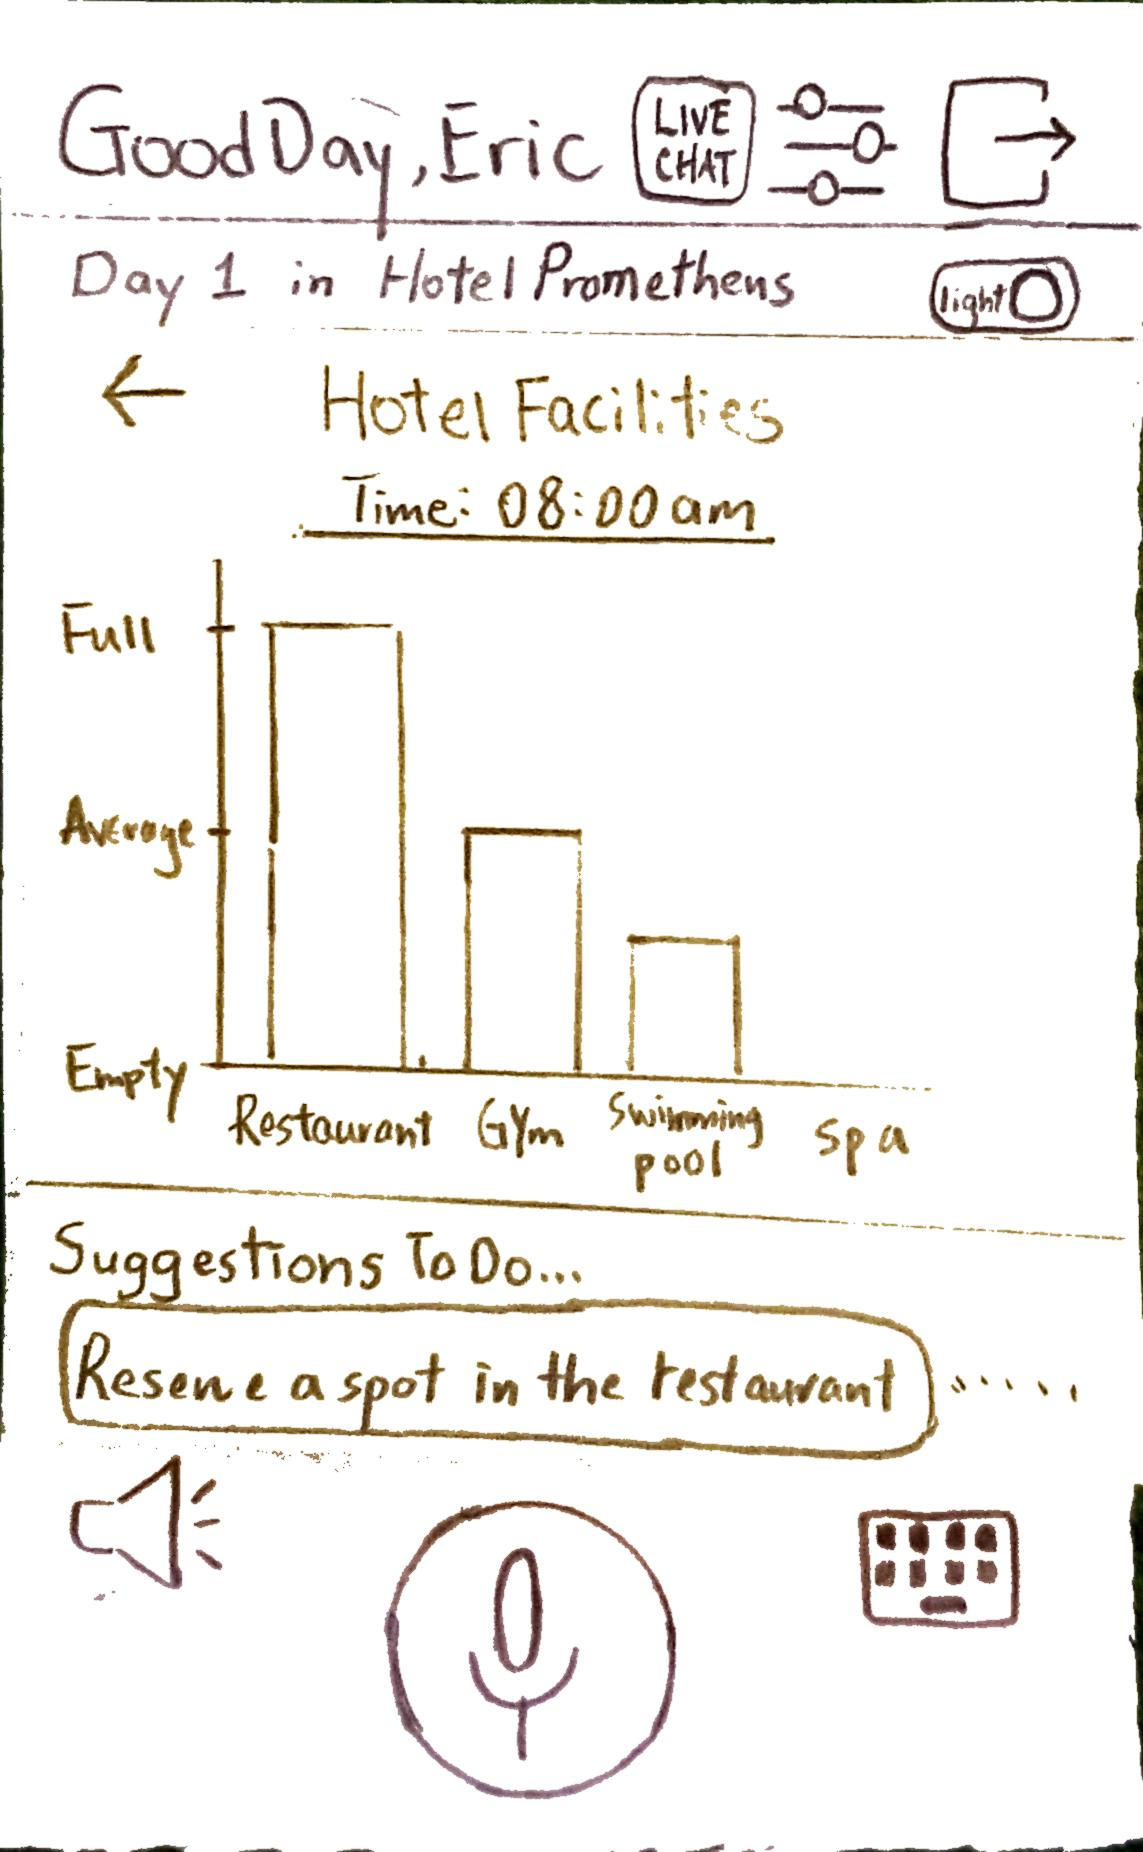 Good Day, Eric
LIVE
CHAT
Day 1 in Hotel Promethens
light
Hotel Facilities
Time: 08:00 am
Full
Average
Empty
Restaurant
Gym
Swimming
pool
Spa
Suggestions To Do...
Reserve a spot in the restaurant ......